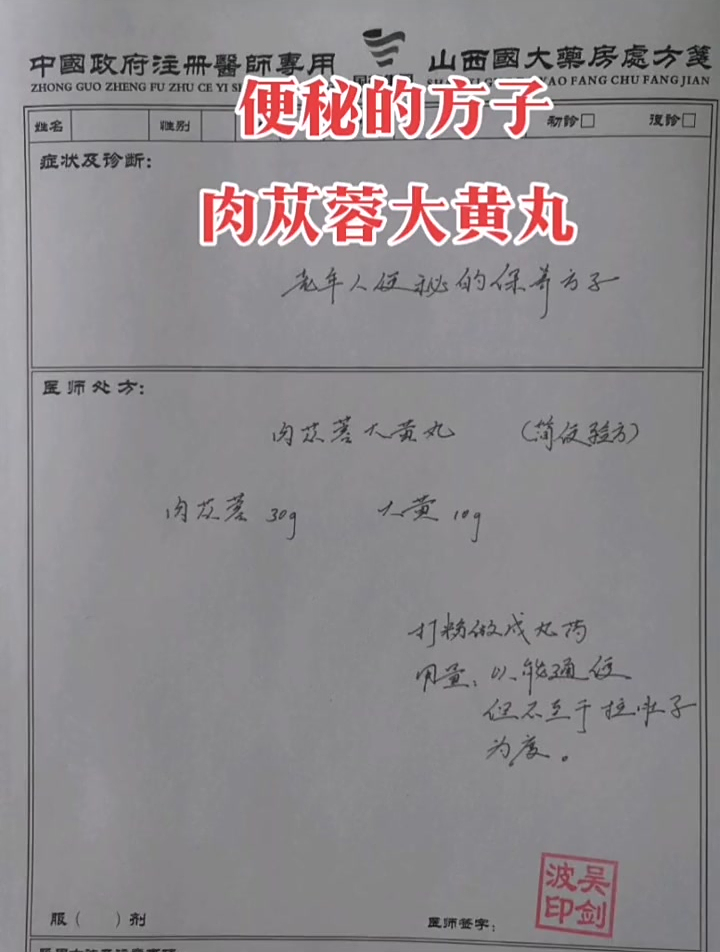 中國政府注册醫師專用 山西國大藥房處方箋
ZHONG GUO ZHENG FU ZHU CE YI
FANG CHU FANG JIAN
便秘的方子
姓名 性别 初診□ 復診□
症状及诊断:
肉苁蓉大黄丸
老年人便秘的保养方子
医师处方:
肉苁蓉大黄丸 (简便验方)
肉苁蓉 30g 大黄 10g
打粉做成丸药
用量、以能通便
但不至于拉肚子
为度。
服( )剂 医师签字:
吴剑波印